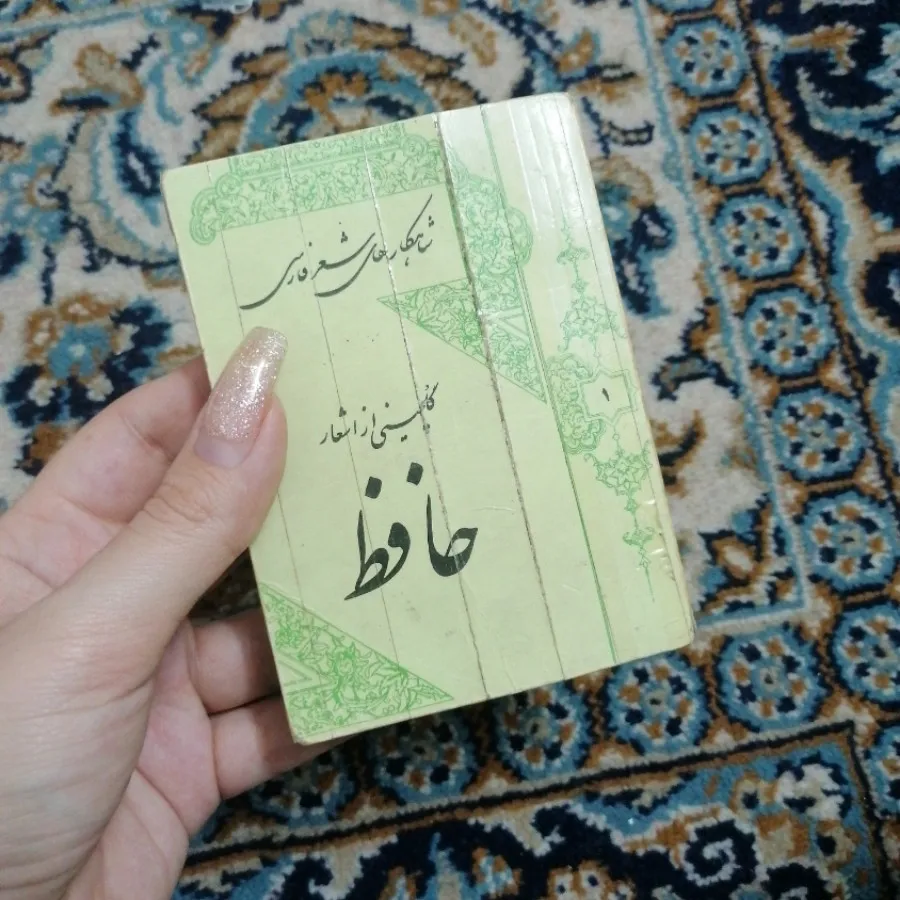 شاهکارهای شعر فارسی
گلچینی از اشعار
حافظ
۱